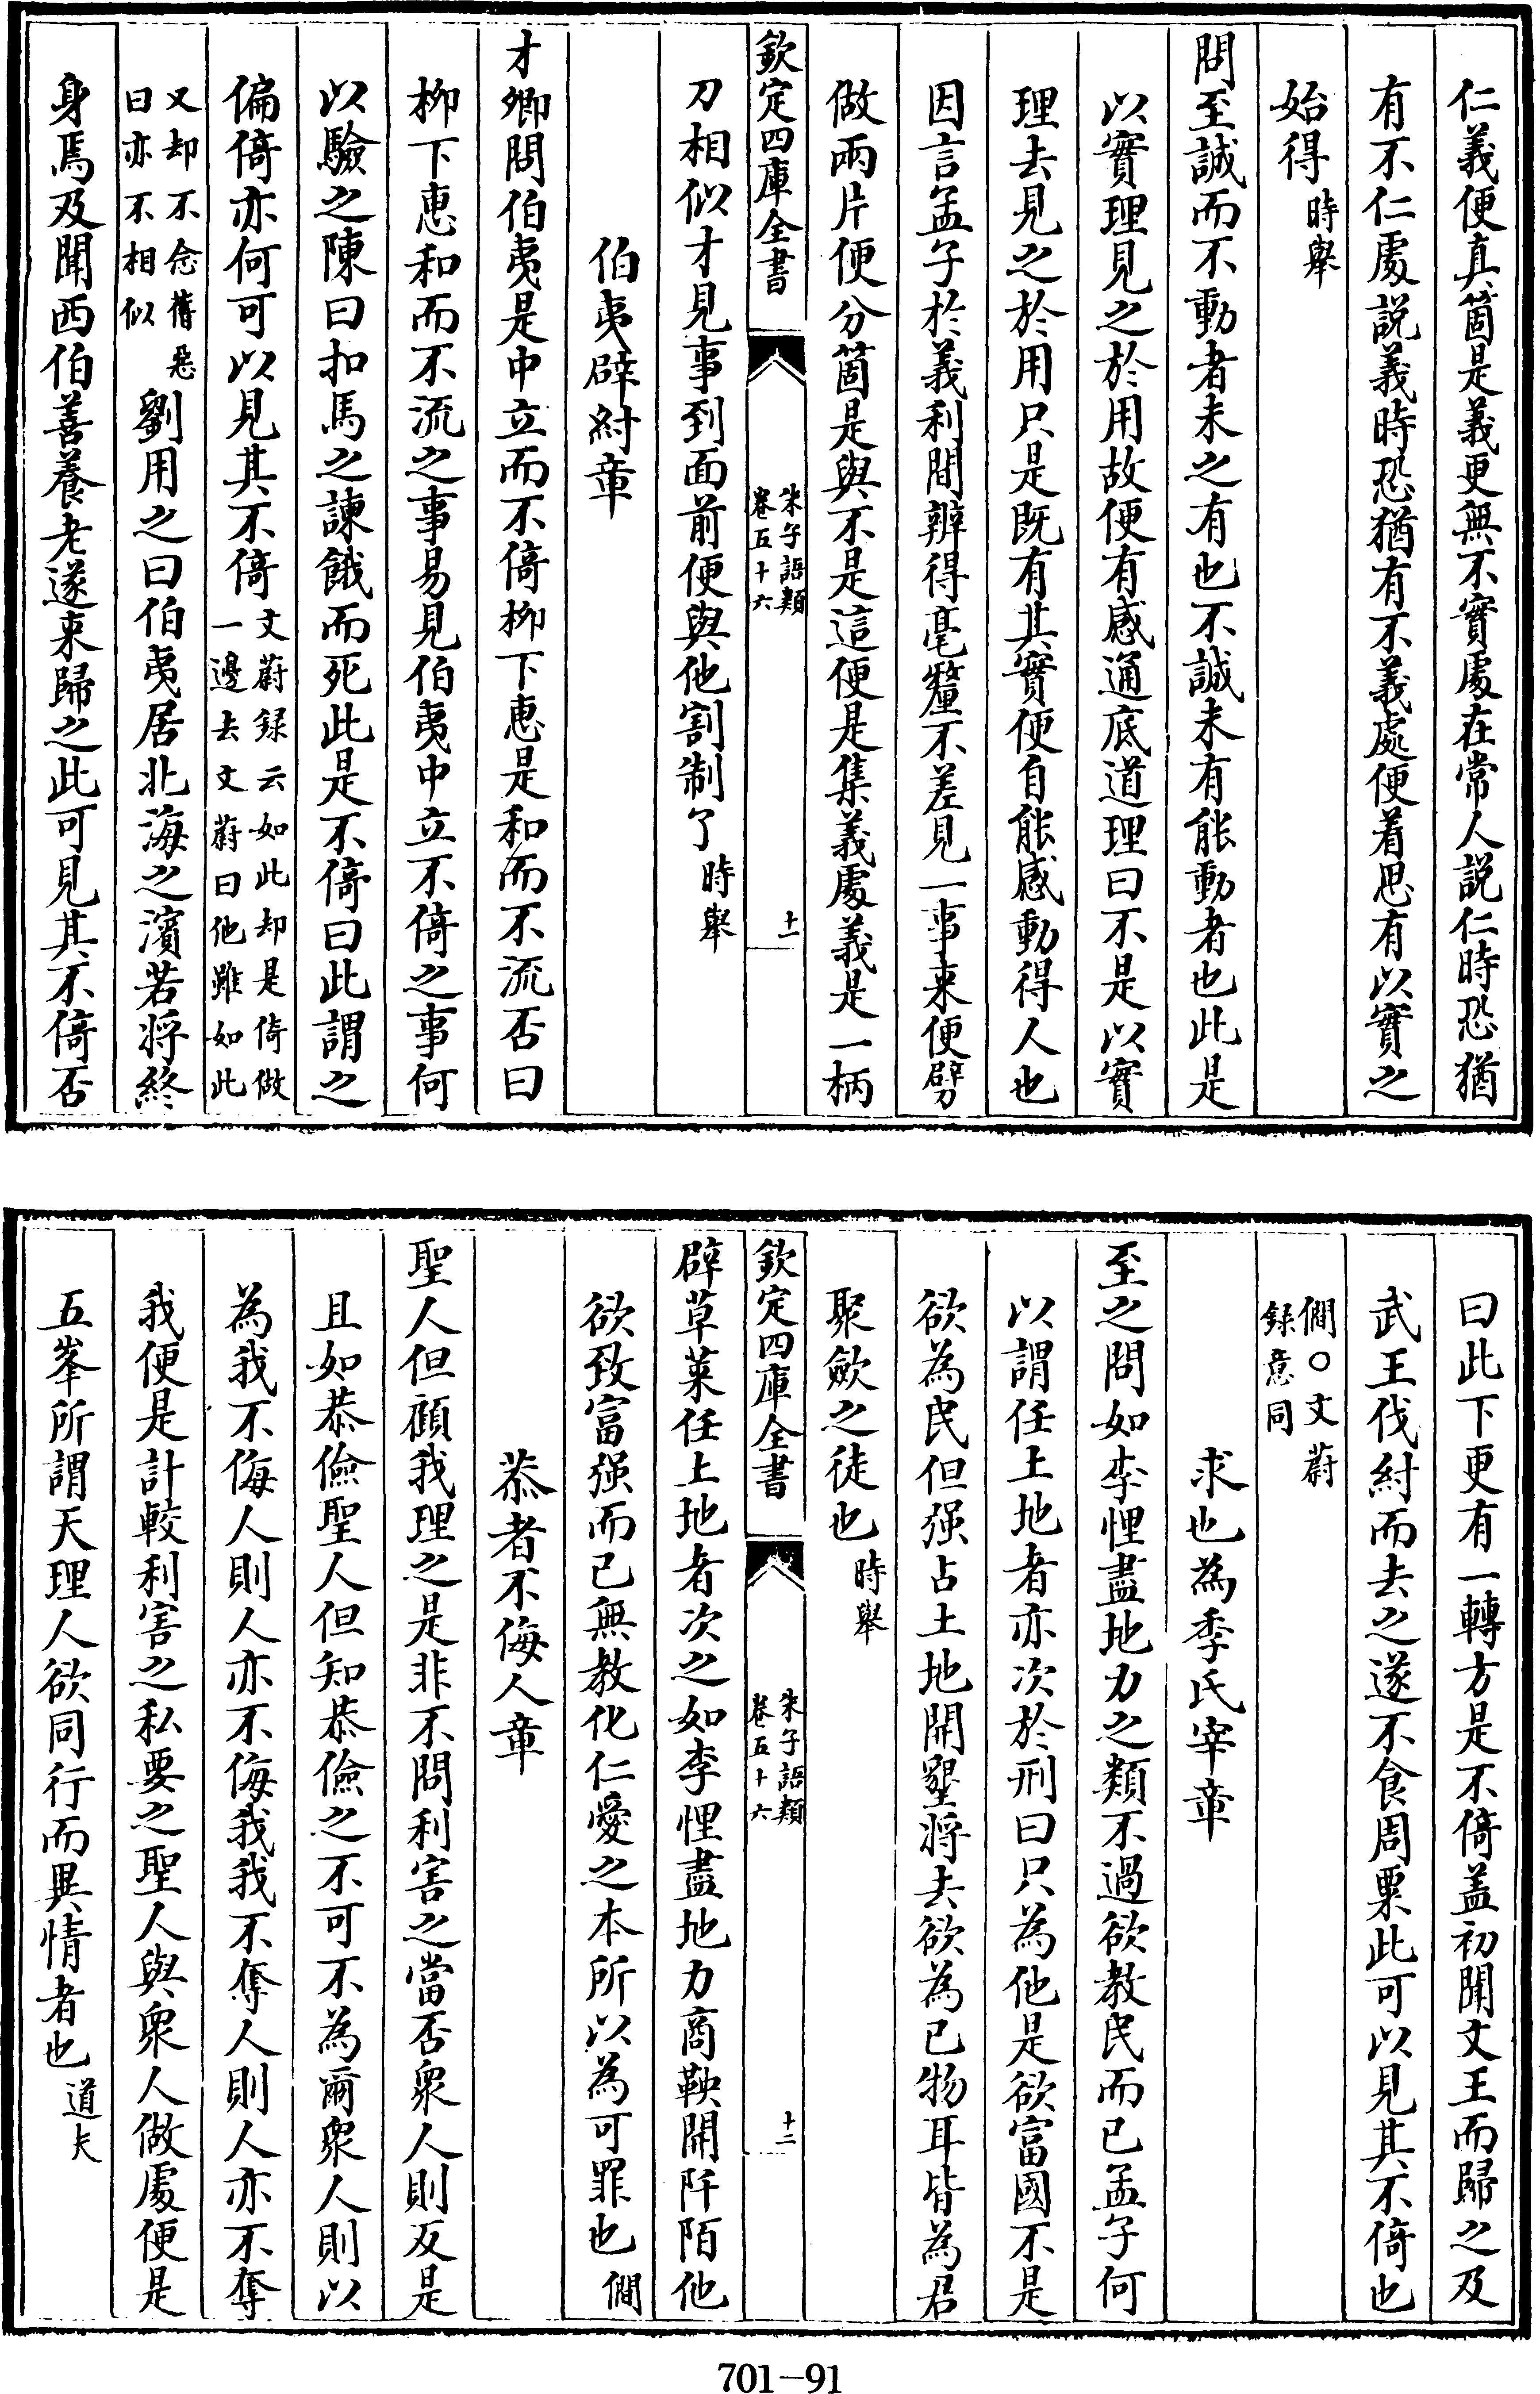 仁義便真箇是義更無不實處在常人説仁時恐猶
有不仁處説義時恐猶有不義處便着思有以實之
始得時舉
問至誠而不動者未之有也不誠未有能動者也此是
以實理見之於用故便有感通底道理曰不是以實
理去見之於用只是既有其實便自能感動得人也
因言孟子於義利間辨得毫釐不差見一事來便劈
做兩片便分箇是與不是這便是集義處義是一柄
欽定四庫全書
朱子語類
卷五十六
十一
刀相似才見事到面前便與他割制了時舉
伯夷辟紂章
才卿問伯夷是中立而不倚柳下惠是和而不流否曰
柳下惠和而不流之事易見伯夷中立不倚之事何
以驗之陳曰扣馬之諫餓而死此是不倚曰此謂之
偏倚亦何可以見其不倚文蔚録云如此却是倚做
一邊去文蔚曰他雖如此
又却不念舊惡
曰亦不相似
劉用之曰伯夷居北海之濱若將終
身焉及聞西伯善養老遂來歸之此可見其不倚否
曰此下更有一轉方是不倚盖初聞文王而歸之及
武王伐紂而去之遂不食周粟此可以見其不倚也
僩○文蔚
録意同
求也為季氏宰章
至之問如李悝盡地力之類不過欲教民而已孟子何
以謂任土地者亦次於刑曰只為他是欲富國不是
欲為民但强占土地開墾將去欲為己物耳皆為君
聚歛之徒也時舉
欽定四庫全書
朱子語類
卷五十六
十二
辟草萊任土地者次之如李悝盡地力商鞅開阡陌他
欲致富强而已無教化仁愛之本所以為可罪也僩
恭者不侮人章
聖人但顧我理之是非不問利害之當否衆人則反是
且如恭儉聖人但知恭儉之不可不為爾衆人則以
為我不侮人則人亦不侮我我不奪人則人亦不奪
我便是計較利害之私要之聖人與衆人做處便是
五峯所謂天理人欲同行而異情者也道夫
701-91